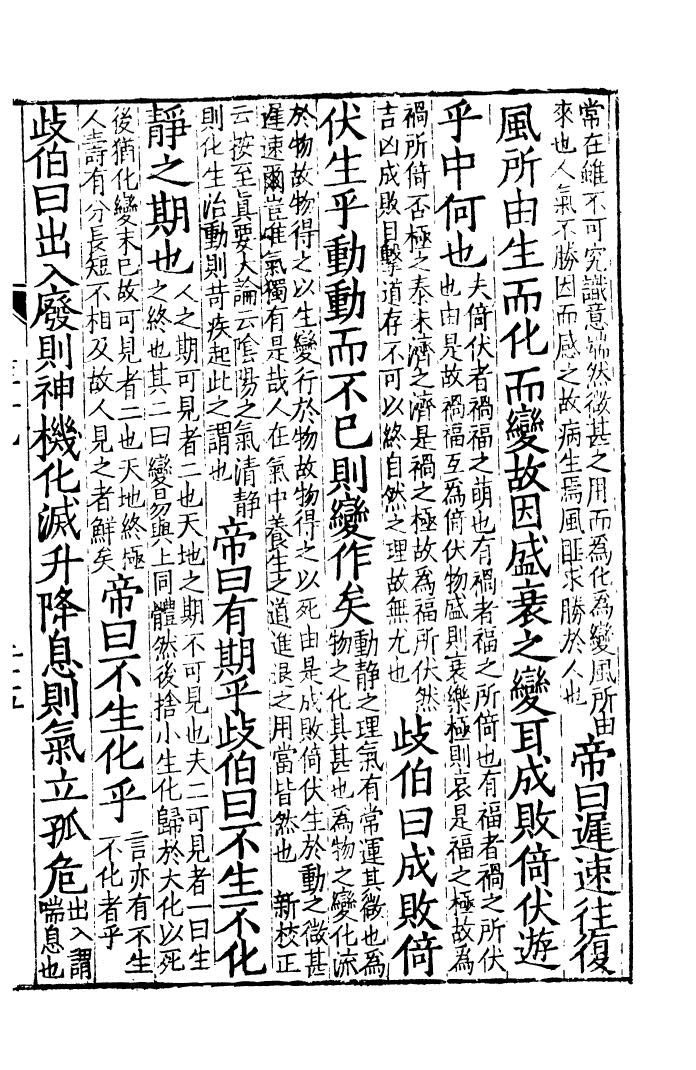 常在雖不可究識意端然微甚之用而為化為變風所由
來也人氣不勝因而感之故病生焉風匪求勝於人也
帝曰遲速往復
風所由生而化而變故因盛衰之變耳成敗倚伏遊
乎中何也
夫倚伏者禍福之萌也有禍者福之所倚也有福者禍之所伏
也由是故禍福互為倚伏物盛則衰樂極則哀是福之極故為
禍所倚否極之泰未濟之濟是禍之極故為福所伏然
吉凶成敗目擊道存不可以終自然之理故無尤也
歧伯曰成敗倚
伏生乎動動而不已則變作矣
動靜之理氣有常運其微也為
物之化其甚也為物之變化流
於物故物得之以生變行於物故物得之以死由是成敗倚伏生於動之微甚
遲速爾豈唯氣獨有是哉人在氣中養生之道進退之用當皆然也 新校正
云按至真要大論云陰陽之氣清靜
則化生治動則苛疾起此之謂也
帝曰有期乎歧伯曰不生不化
靜之期也
人之期可見者二也天地之期不可見也夫二可見者一曰生
之終也其二曰變易與上同體然後捨小生化歸於大化以死
後猶化變未已故可見者二也天地終極
人壽有分長短不相及故人見之者鮮矣
帝曰不生化乎
言亦有不生
不化者乎
歧伯曰出入廢則神機化滅升降息則氣立孤危
出入謂
喘息也